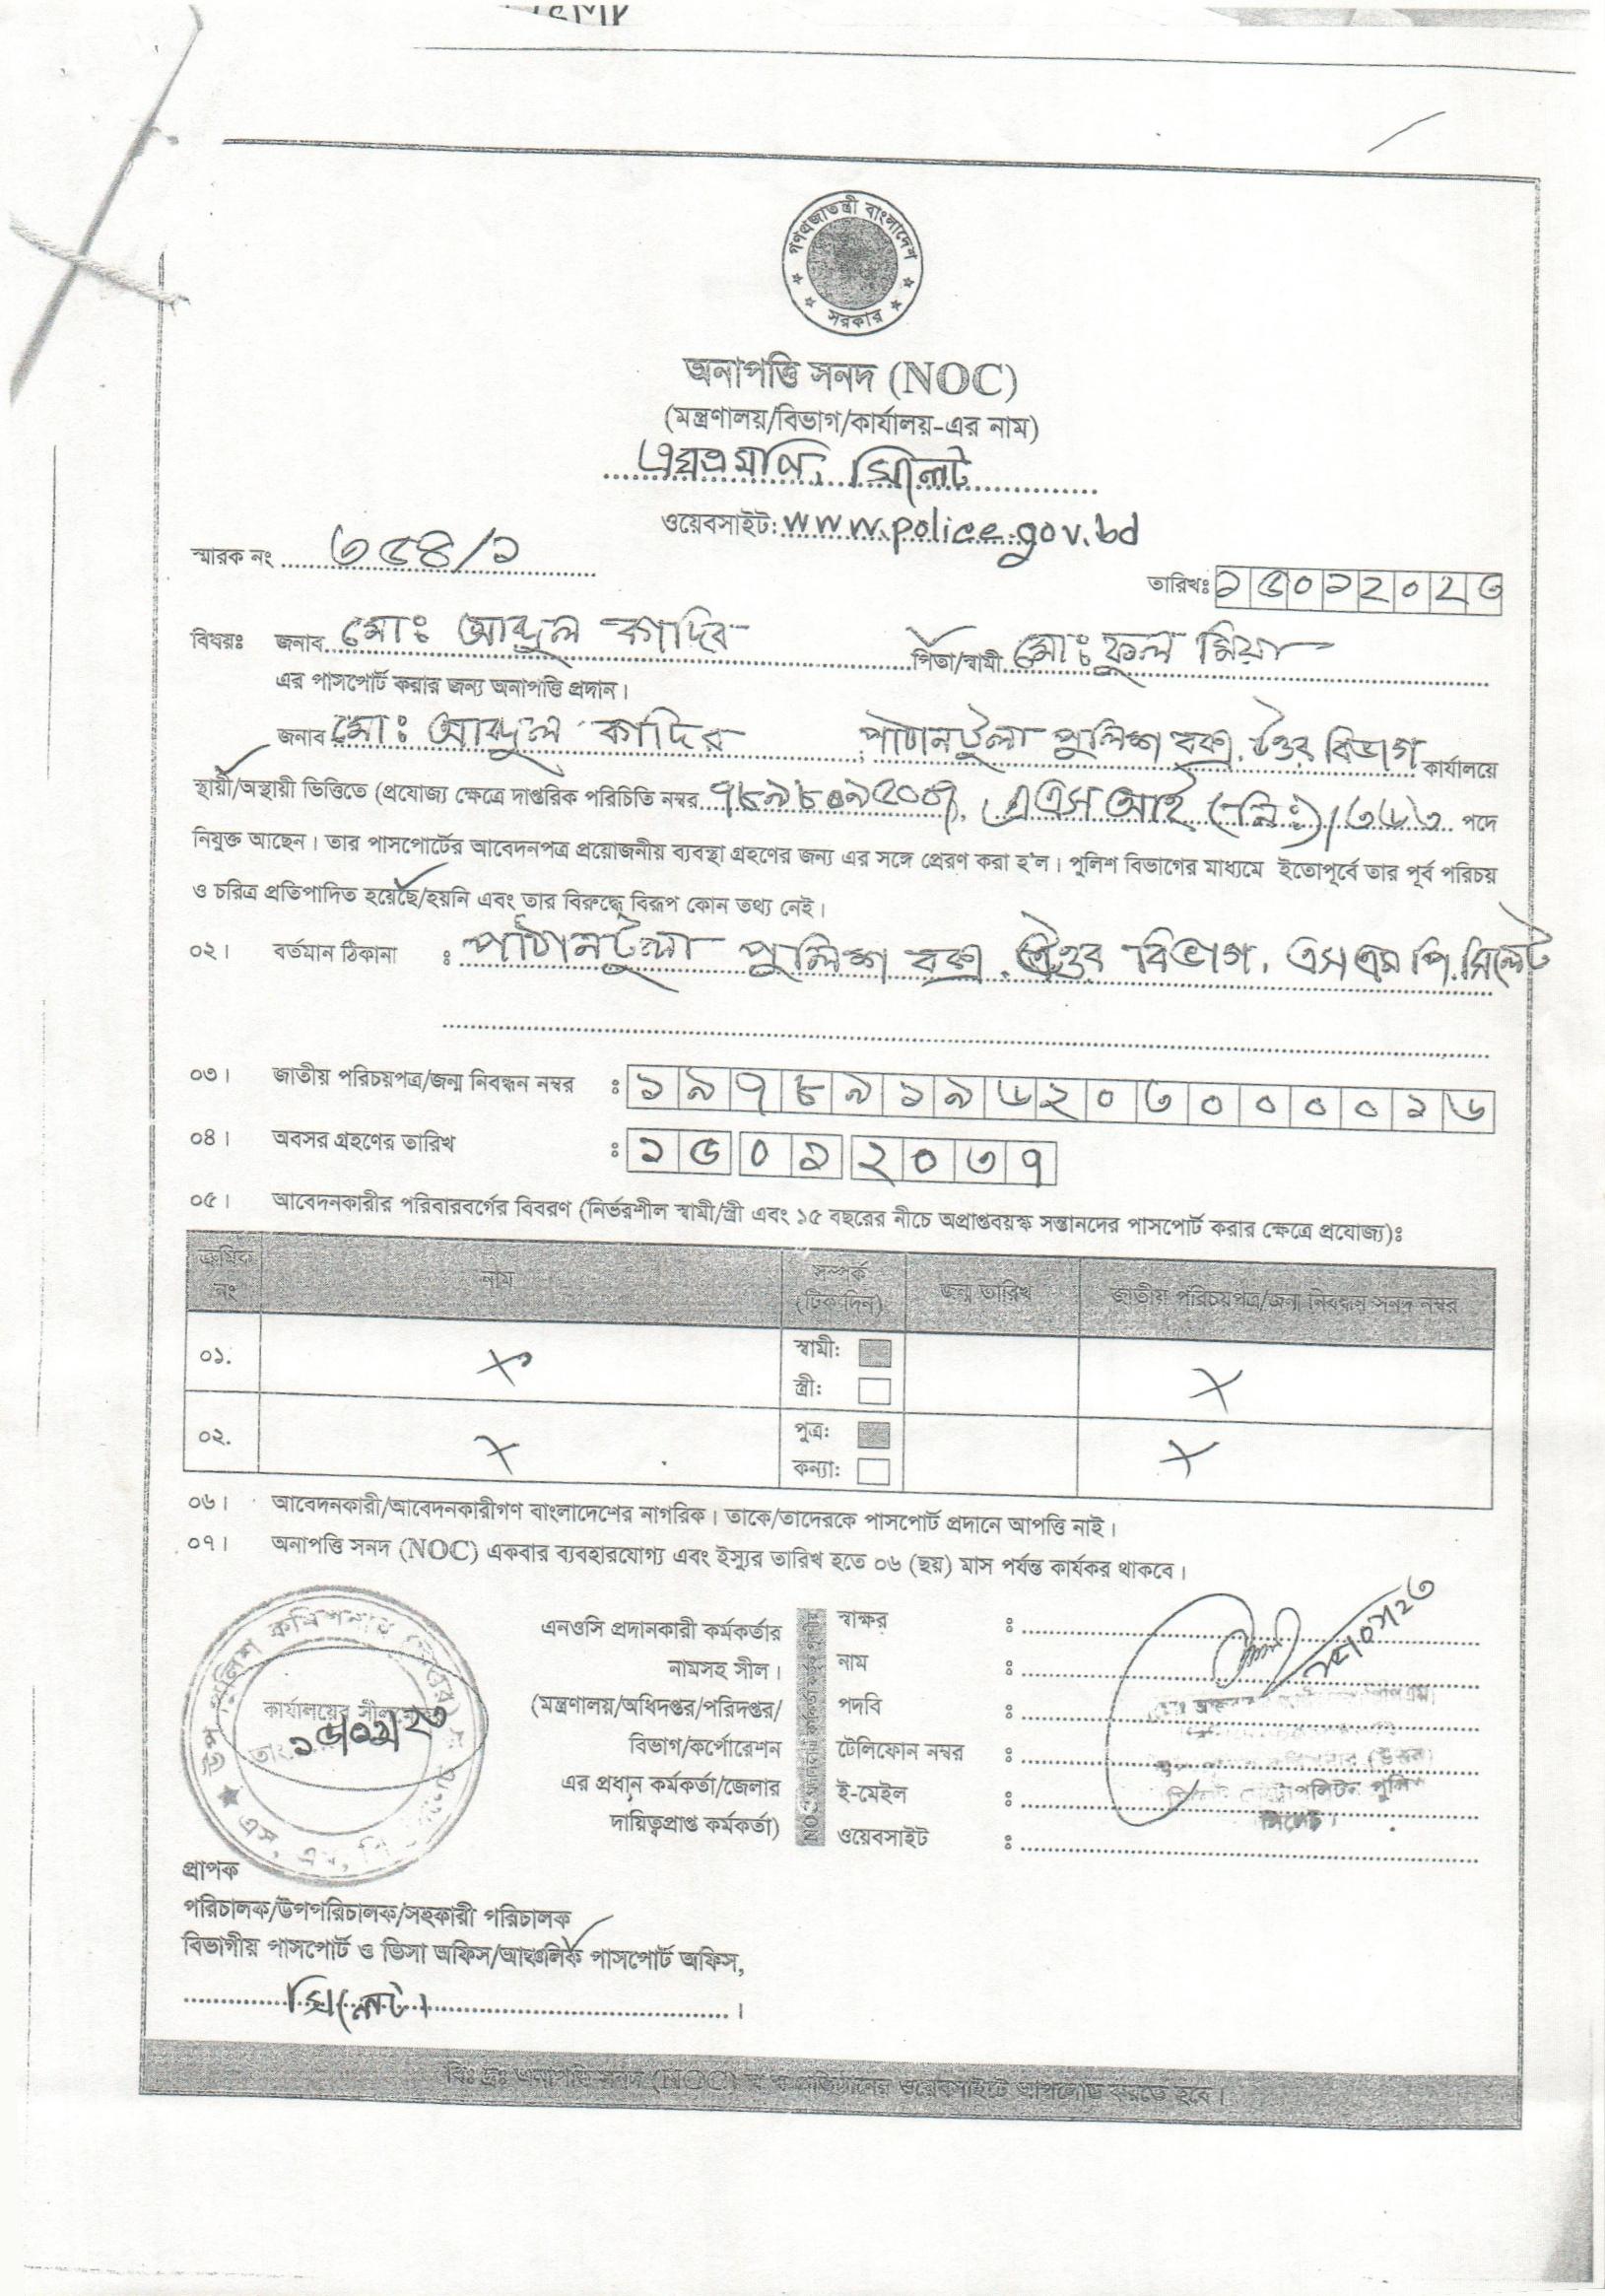 গণপ্রজাতন্ত্রী বাংলাদেশ
সরকার
অনাপত্তি সনদ (NOC)
(মন্ত্রণালয়/বিভাগ/কার্যালয়-এর নাম)
এসএমপি, সিলেট
ওয়েবসাইট: www.police.gov.bd
স্মারক নং ৩৫৪/১
তারিখঃ ১৫০১২০২৩
বিষয়ঃ জনাব মোঃ আব্দুল কাদির পিতা/স্বামী মোঃ ফুল মিয়া
এর পাসপোর্ট করার জন্য অনাপত্তি প্রদান।
জনাব মোঃ আব্দুল কাদির, পাঠানটুলা পুলিশ বক্স, উত্তর বিভাগ কার্যালয়ে
স্থায়ী/অস্থায়ী ভিত্তিতে (প্রযোজ্য ক্ষেত্রে দাপ্তরিক পরিচিতি নম্বর এএসআই (নিঃ)/৩৬৩ পদে
নিযুক্ত আছেন। তার পাসপোর্টের আবেদনপত্র প্রয়োজনীয় ব্যবস্থা গ্রহণের জন্য এর সঙ্গে প্রেরণ করা হ'ল। পুলিশ বিভাগের মাধ্যমে ইতোপূর্বে তার পূর্ব পরিচয়
ও চরিত্র প্রতিপাদিত হয়েছে/হয়নি এবং তার বিরুদ্ধে বিরূপ কোন তথ্য নেই।
০২। বর্তমান ঠিকানা ঃ পাঠানটুলা পুলিশ বক্স, উত্তর বিভাগ, এসএমপি, সিলেট
০৩। জাতীয় পরিচয়পত্র/জন্ম নিবন্ধন নম্বর ঃ ১৯৭৮৯১৯৬২০৩০০০০১৬
০৪। অবসর গ্রহণের তারিখ ঃ ১৫০১২০৩৭
০৫। আবেদনকারীর পরিবারবর্গের বিবরণ (নির্ভরশীল স্বামী/স্ত্রী এবং ১৫ বছরের নীচে অপ্রাপ্তবয়স্ক সন্তানদের পাসপোর্ট করার ক্ষেত্রে প্রযোজ্য)ঃ
ক্রমিক নং নাম সম্পর্ক (টিক দিন) জন্ম তারিখ জাতীয় পরিচয়পত্র/জন্ম নিবন্ধন সনদ নম্বর
০১. স্বামী:
স্ত্রী:
০২. পুত্র:
কন্যা:
০৬। আবেদনকারী/আবেদনকারীগণ বাংলাদেশের নাগরিক। তাকে/তাদেরকে পাসপোর্ট প্রদানে আপত্তি নাই।
০৭। অনাপত্তি সনদ (NOC) একবার ব্যবহারযোগ্য এবং ইস্যুর তারিখ হতে ০৬ (ছয়) মাস পর্যন্ত কার্যকর থাকবে।
উপ পুলিশ কমিশনার
কার্যালয়ের সীলমোহর
তাং
এস, এম, পি
এনওসি প্রদানকারী কর্মকর্তার
নামসহ সীল।
(মন্ত্রণালয়/অধিদপ্তর/পরিদপ্তর/
বিভাগ/কর্পোরেশন
এর প্রধান কর্মকর্তা/জেলার
দায়িত্বপ্রাপ্ত কর্মকর্তা)
স্বাক্ষর ঃ
নাম ঃ
পদবি ঃ
টেলিফোন নম্বর ঃ
ই-মেইল ঃ
ওয়েবসাইট ঃ
মেট্রোপলিটন পুলিশ
সিলেট।
প্রাপক
পরিচালক/উপপরিচালক/সহকারী পরিচালক
বিভাগীয় পাসপোর্ট ও ভিসা অফিস/আঞ্চলিক পাসপোর্ট অফিস,
সিলেট।
বিঃ দ্রঃ অনাপত্তি সনদ (NOC) স্ব স্ব প্রতিষ্ঠানের ওয়েবসাইটে আপলোড করতে হবে।